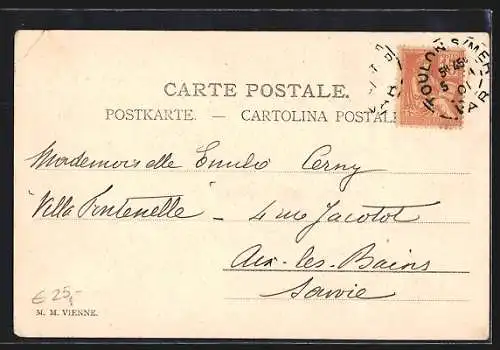 TOULON S/MER
VAR
CARTE POSTALE.
POSTKARTE. — CARTOLINA POSTAL
Mademoiselle Cerny
"Villa Fontenelle" – 4 rue Jacotot
Aix-les-Bains
Savoie
€ 25,-
M. M. VIENNE.